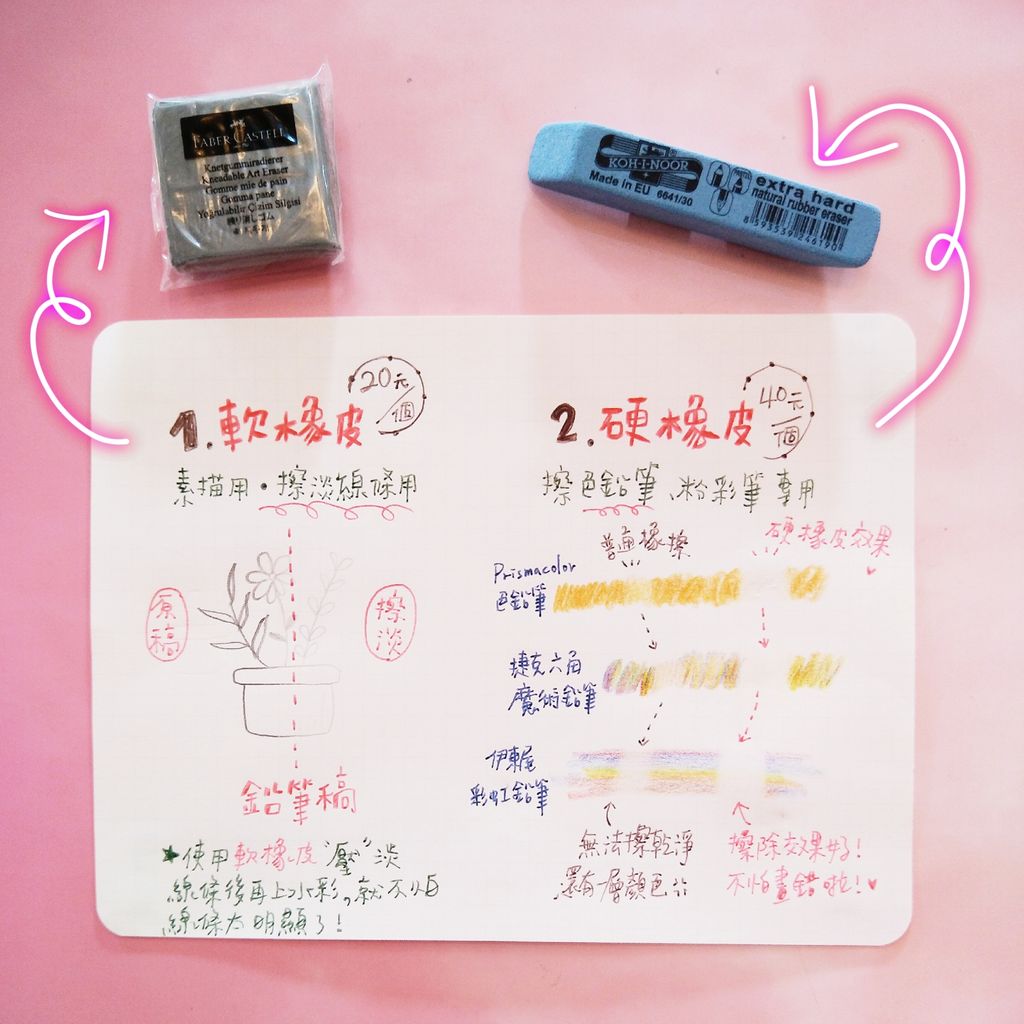 FABER-CASTELL
Knetgummiradierer
Kneadable Art Eraser
Gomme mie de pain
Goma pane
Yoğrulabilir Çizim Silgisi
練り消しゴム
KOH-I-NOOR
Made in EU 6641/30
extra hard
natural rubber eraser
8 593539 246190
1.軟橡皮
20元/個
素描用・擦淡線條用
原稿
擦淡
鉛筆稿
★使用軟橡皮"壓"淡
線條後再上水彩,就不怕
線條太明顯了!
2.硬橡皮
40元/個
擦色鉛筆、粉彩筆專用
普通橡擦
硬橡皮效果
Prismacolor
色鉛筆
捷克六角
魔術鉛筆
伊東屋
彩虹鉛筆
無法擦乾淨
還有層顏色
擦除效果好!
不怕畫錯啦!